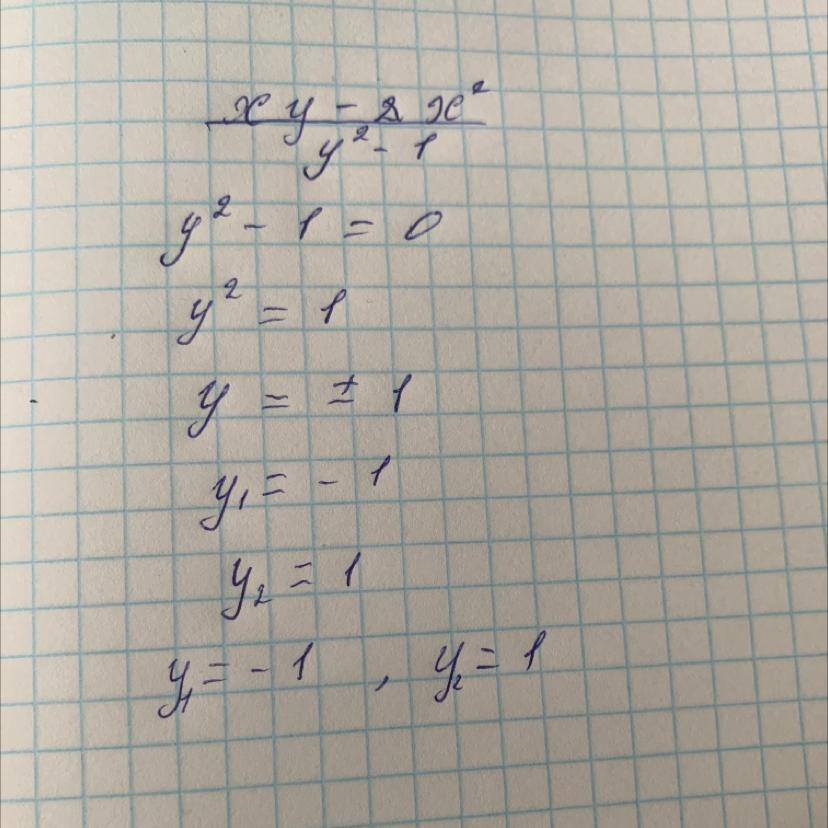 xy - 2x²
y² - 1
y² - 1 = 0
y² = 1
y = ± 1
y₁ = - 1
y₂ = 1
y₁ = - 1 , y₂ = 1